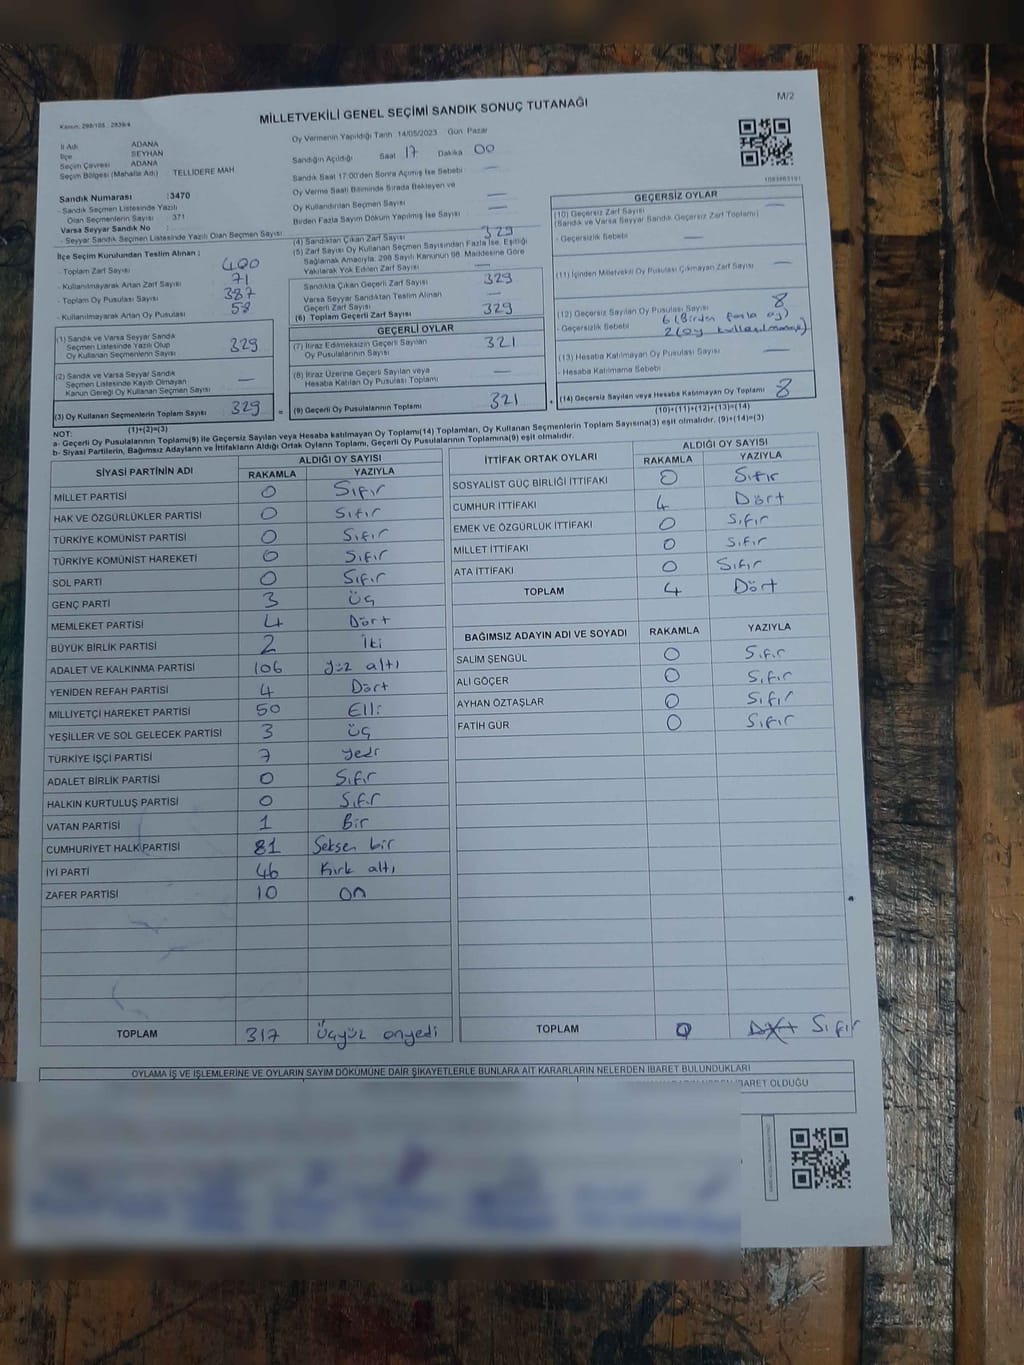 MİLLETVEKİLİ GENEL SEÇİMİ SANDIK SONUÇ TUTANAĞI
M/2
Kanun: 298/105 - 2839/4
İl Adı ADANA
İlçe SEYHAN
Seçim Çevresi ADANA
Seçim Bölgesi (Mahalle Adı) TELLİDERE MAH
Sandık Numarası :3470
- Sandık Seçmen Listesinde Yazılı
Olan Seçmenlerin Sayısı : 371
Varsa Seyyar Sandık No :
- Seyyar Sandık Seçmen Listesinde Yazılı Olan Seçmen Sayısı
Oy Vermenin Yapıldığı Tarih 14/05/2023 Gün Pazar
Sandığın Açıldığı Saat 17 Dakika 00
Sandık Saat 17:00'den Sonra Açılmış İse Sebebi : —
Oy Verme Saati Bitiminde Sırada Bekleyen ve
Oy Kullandırılan Seçmen Sayısı —
Birden Fazla Sayım Döküm Yapılmış İse Sayısı —
İlçe Seçim Kurulundan Teslim Alınan ;
- Toplam Zarf Sayısı 400
- Kullanılmayarak Artan Zarf Sayısı 71
- Toplam Oy Pusulası Sayısı 387
- Kullanılmayarak Artan Oy Pusulası 58
(1) Sandık ve Varsa Seyyar Sandık
Seçmen Listesinde Yazılı Olup
Oy Kullanan Seçmenlerin Sayısı 329
(2) Sandık ve Varsa Seyyar Sandık
Seçmen Listesinde Kayıtlı Olmayan
Kanun Gereği Oy Kullanan Seçmen Sayısı —
(3) Oy Kullanan Seçmenlerin Toplam Sayısı 329
(1)+(2)=(3)
(4) Sandıktan Çıkan Zarf Sayısı 329
(5) Zarf Sayısı Oy Kullanan Seçmen Sayısından Fazla İse, Eşitliği
Sağlamak Amacıyla, 298 Sayılı Kanunun 98. Maddesine Göre
Yakılarak Yok Edilen Zarf Sayısı —
Sandıkta Çıkan Geçerli Zarf Sayısı 329
Varsa Seyyar Sandıktan Teslim Alınan
Geçerli Zarf Sayısı —
(6) Toplam Geçerli Zarf Sayısı 329
GEÇERLİ OYLAR
(7) İtiraz Edilmeksizin Geçerli Sayılan
Oy Pusulalarının Sayısı 321
(8) İtiraz Üzerine Geçerli Sayılan veya
Hesaba Katılan Oy Pusulası Toplamı —
= (9) Geçerli Oy Pusulalarının Toplamı 321
GEÇERSİZ OYLAR
(10) Geçersiz Zarf Sayısı
(Sandık ve Varsa Seyyar Sandık Geçersiz Zarf Toplamı) —
- Geçersizlik Sebebi —
(11) İçinden Milletvekili Oy Pusulası Çıkmayan Zarf Sayısı —
(12) Geçersiz Sayılan Oy Pusulası Sayısı 8
- Geçersizlik Sebebi 6 (Birden fazla oy)
2
(13) Hesaba Katılmayan Oy Pusulası Sayısı —
- Hesaba Katılmama Sebebi
+ (14) Geçersiz Sayılan veya Hesaba Katılmayan Oy Toplamı 8
(10)+(11)+(12)+(13)=(14)
NOT:
a- Geçerli Oy Pusulalarının Toplamı(9) ile Geçersiz Sayılan veya Hesaba katılmayan Oy Toplamı(14) Toplamları, Oy Kullanan Seçmenlerin Toplam Sayısına(3) eşit olmalıdır. (9)+(14)=(3)
b- Siyasi Partilerin, Bağımsız Adayların ve İttifakların Aldığı Ortak Oyların Toplamı, Geçerli Oy Pusulalarının Toplamına(9) eşit olmalıdır.
SİYASİ PARTİNİN ADI ALDIĞI OY SAYISI
RAKAMLA YAZIYLA
MİLLET PARTİSİ 0 Sıfır
HAK VE ÖZGÜRLÜKLER PARTİSİ 0 Sıfır
TÜRKİYE KOMÜNİST PARTİSİ 0 Sıfır
TÜRKİYE KOMÜNİST HAREKETİ 0 Sıfır
SOL PARTİ 0 Sıfır
GENÇ PARTİ 3 Üç
MEMLEKET PARTİSİ 4 Dört
BÜYÜK BİRLİK PARTİSİ 2 İki
ADALET VE KALKINMA PARTİSİ 106 yüz altı
YENİDEN REFAH PARTİSİ 4 Dört
MİLLİYETÇİ HAREKET PARTİSİ 50 Elli
YEŞİLLER VE SOL GELECEK PARTİSİ 3 Üç
TÜRKİYE İŞÇİ PARTİSİ 7 yedi
ADALET BİRLİK PARTİSİ 0 Sıfır
HALKIN KURTULUŞ PARTİSİ 0 Sıfır
VATAN PARTİSİ 1 Bir
CUMHURİYET HALK PARTİSİ 81 Seksen bir
İYİ PARTİ 46 Kırk altı
ZAFER PARTİSİ 10 On
TOPLAM 317 Üçyüz onyedi
İTTİFAK ORTAK OYLARI ALDIĞI OY SAYISI
RAKAMLA YAZIYLA
SOSYALİST GÜÇ BİRLİĞİ İTTİFAKI 0 Sıfır
CUMHUR İTTİFAKI 4 Dört
EMEK VE ÖZGÜRLÜK İTTİFAKI 0 Sıfır
MİLLET İTTİFAKI 0 Sıfır
ATA İTTİFAKI 0 Sıfır
TOPLAM 4 Dört
BAĞIMSIZ ADAYIN ADI VE SOYADI RAKAMLA YAZIYLA
SALİM ŞENGÜL 0 Sıfır
ALİ GÖÇER 0 Sıfır
AYHAN ÖZTAŞLAR 0 Sıfır
FATİH GÜR 0 Sıfır
TOPLAM 0 Sıfır
OYLAMA İŞ VE İŞLEMLERİNE VE OYLARIN SAYIM DÖKÜMÜNE DAİR ŞİKAYETLERLE BUNLARA AİT KARARLARIN NELERDEN İBARET BULUNDUKLARI
İBARET OLDUĞU